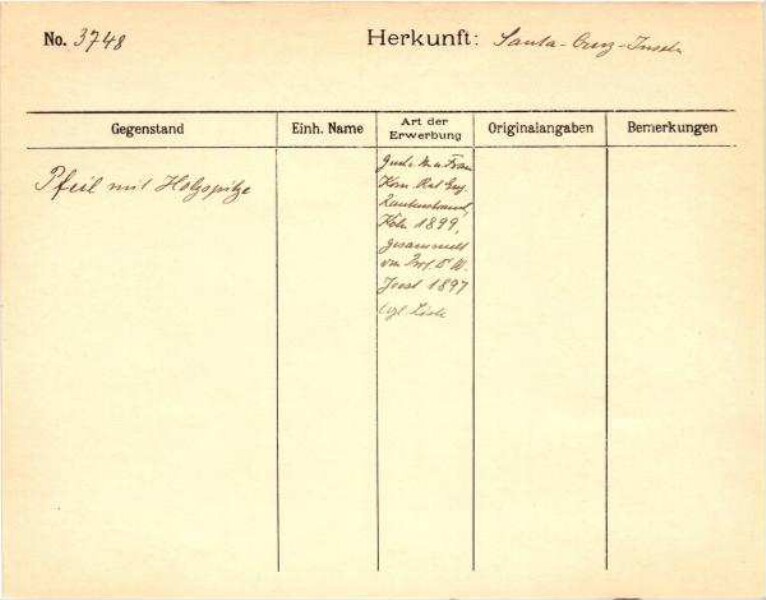 No. 3748
Herkunft: Santa-Cruz-Inseln
Gegenstand
Einh. Name
Art der Erwerbung
Originalangaben
Bemerkungen
Pfeil mit Holzspitze
Frau
Kom. Rat Eug.
Rautenstrauch,
Köln 1899,
gesammelt
von Prof. Dr W.
Joest 1897
vgl. Liste